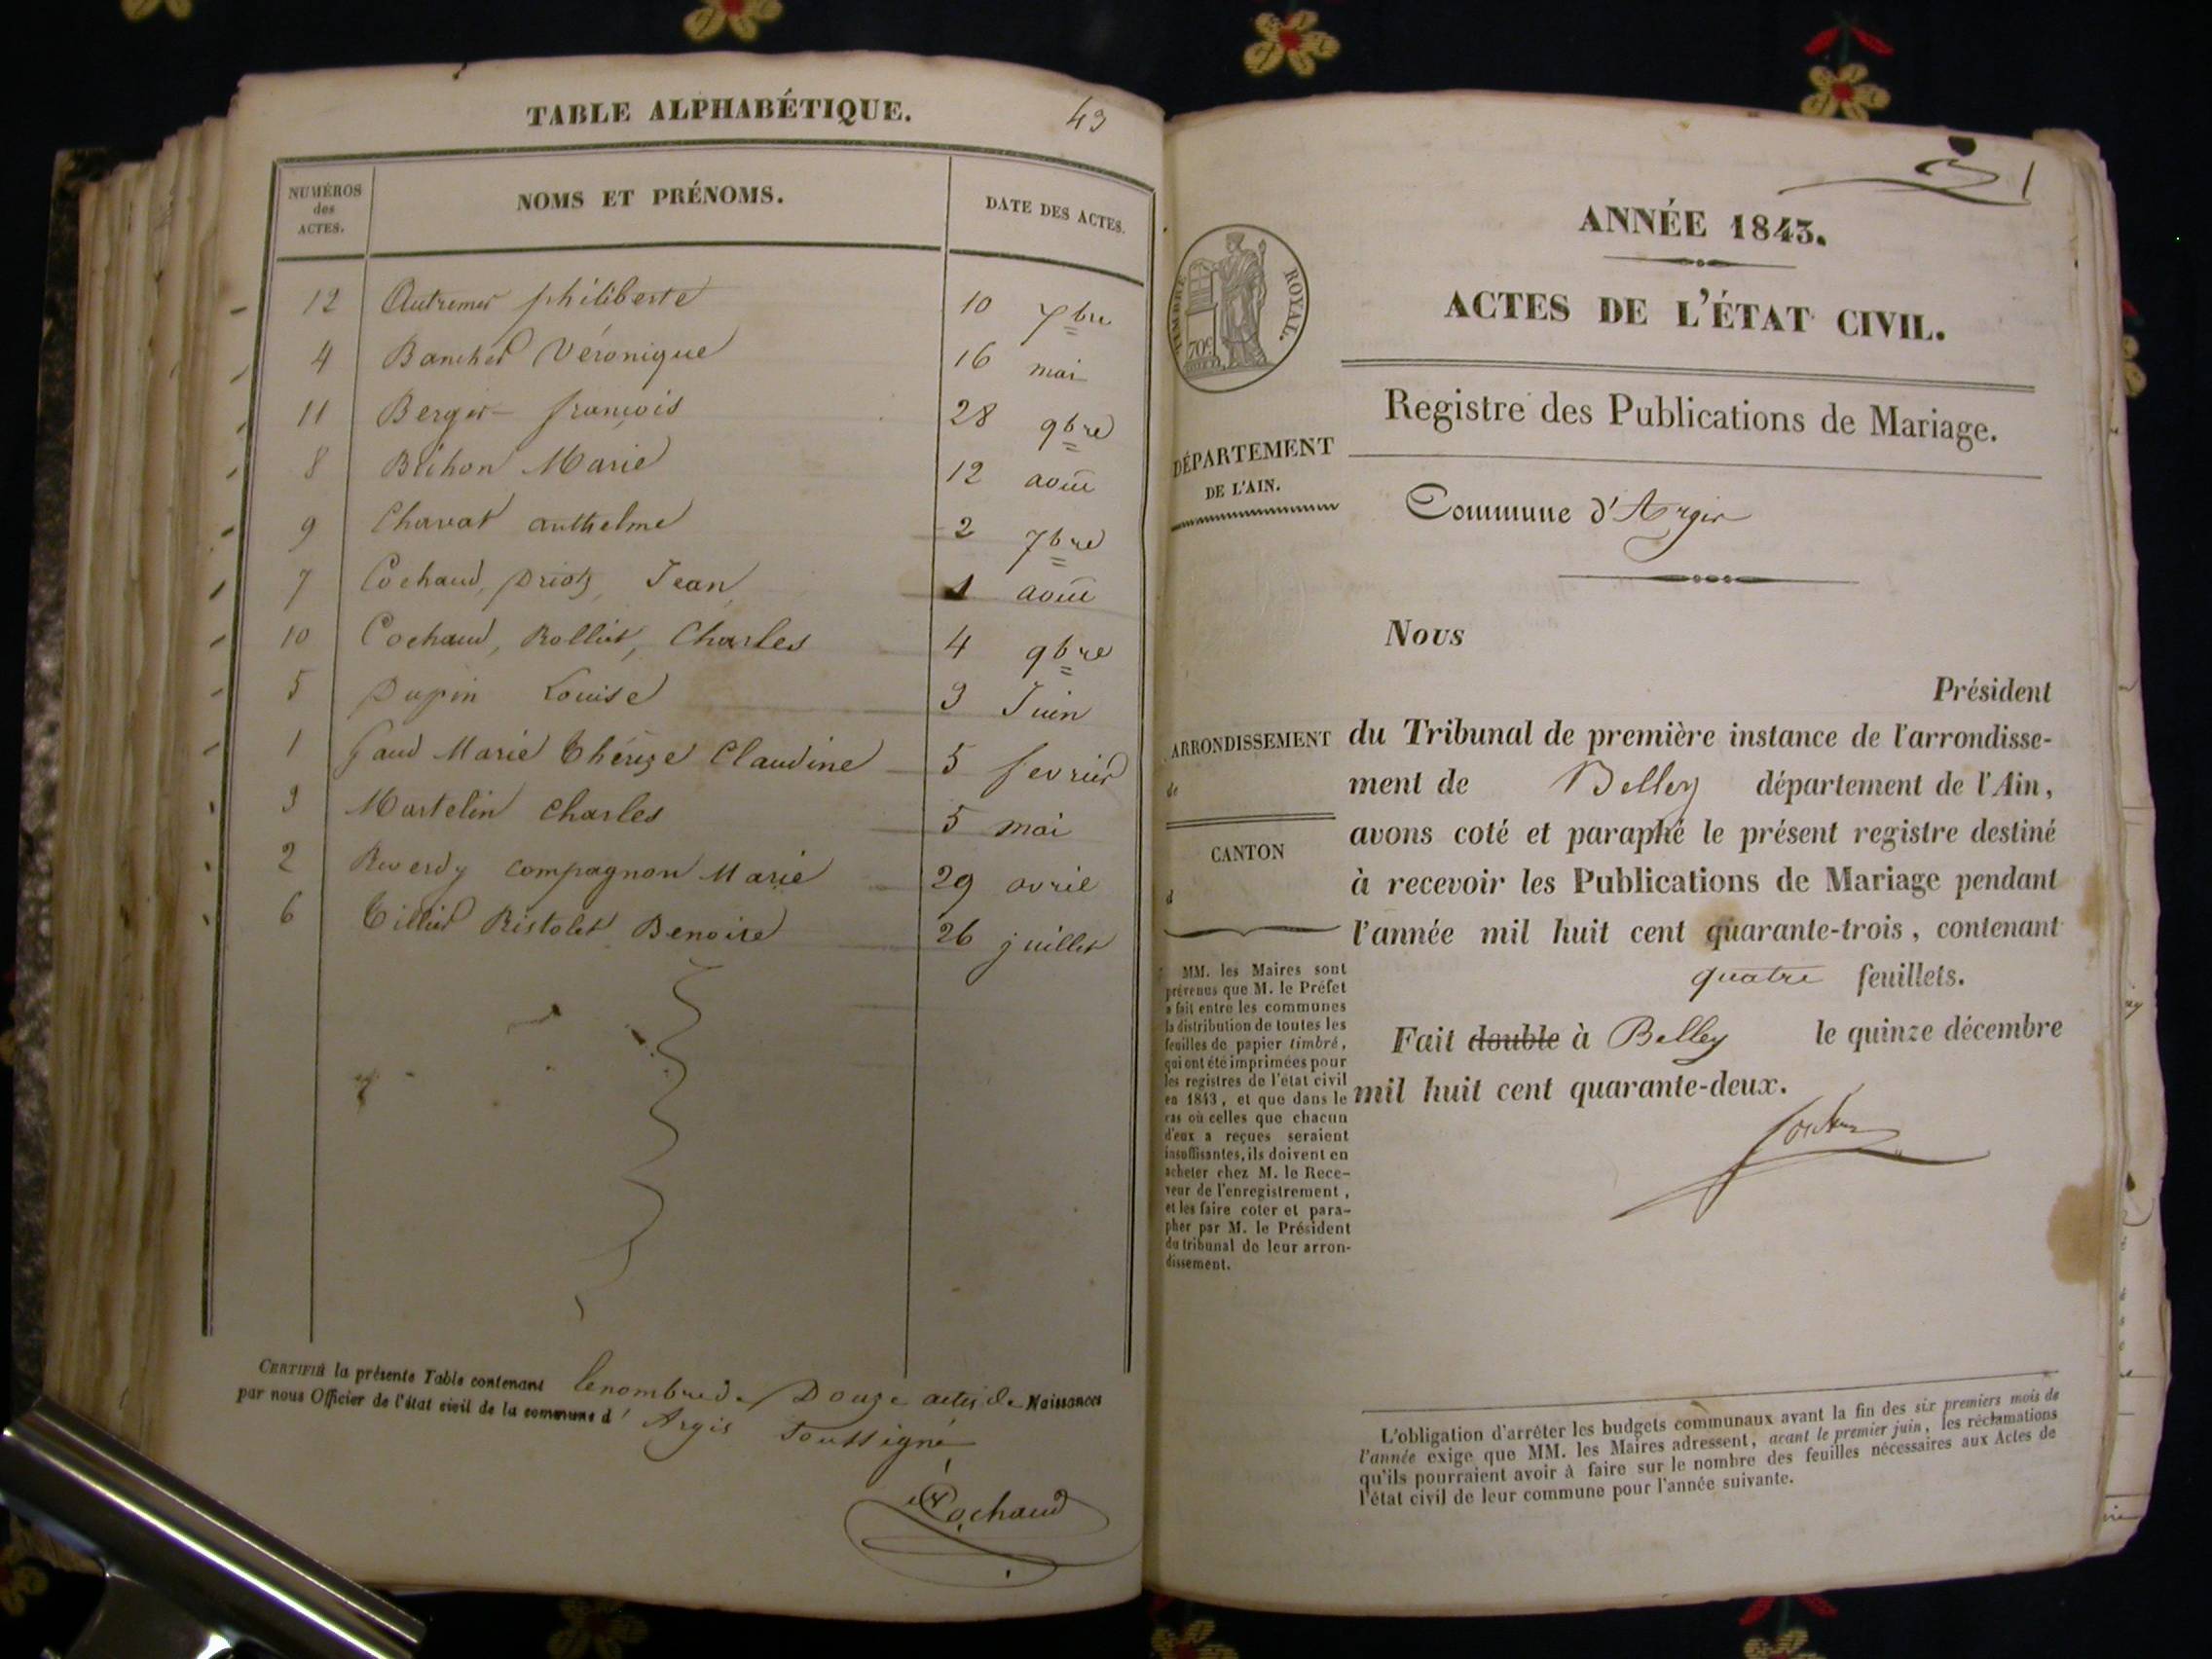 TABLE ALPHABÉTIQUE.
43
NUMÉROS
des
ACTES.
NOMS ET PRÉNOMS.
DATE DES ACTES.
12 philiberte 10
4 Véronique 16 mai
11 Berger françois 28 9bre
8 Marie 12 août
9 Chavat anthelme 2 7bre
7 Cochaud, Jean 1 août
10 Cochaud, Rollin, Charles 4 9bre
5 Dupin Louise 3 Juin
1 Marie Thérèze Claudine 5 fevrier
3 Martelin Charles 5 mai
2 compagnon Marie 29 avril
6 Ristolet Benoite 26 juillet
CERTIFIÉ la présente Table contenant le nombre de Douze actes de Naissances
par nous Officier de l'état civil de la commune d'Argis Soussigné
Cochaud
1
ANNÉE 1843.
TIMBRE ROYAL.
70c
ACTES DE L'ÉTAT CIVIL.
Registre des Publications de Mariage.
DÉPARTEMENT
DE L'AIN.
Commune d'Argis
Nous
Président
ARRONDISSEMENT
de
CANTON
d
du Tribunal de première instance de l'arrondisse-
ment de Belley département de l'Ain,
avons coté et paraphé le présent registre destiné
à recevoir les Publications de Mariage pendant
l'année mil huit cent quarante-trois, contenant
quatre feuillets.
Fait double à Belley le quinze décembre
mil huit cent quarante-deux.
MM. les Maires sont
prévenus que M. le Préfet
a fait entre les communes
la distribution de toutes les
feuilles de papier timbré,
qui ont été imprimées pour
les registres de l'état civil
en 1843, et que dans le
cas où celles que chacun
d'eux a reçues seraient
insuffisantes, ils doivent en
acheter chez M. le Rece-
veur de l'enregistrement,
et les faire coter et para-
pher par M. le Président
du tribunal de leur arron-
dissement.
L'obligation d'arrêter les budgets communaux avant la fin des six premiers mois de
l'année exige que MM. les Maires adressent, avant le premier juin, les réclamations
qu'ils pourraient avoir à faire sur le nombre des feuilles nécessaires aux Actes de
l'état civil de leur commune pour l'année suivante.